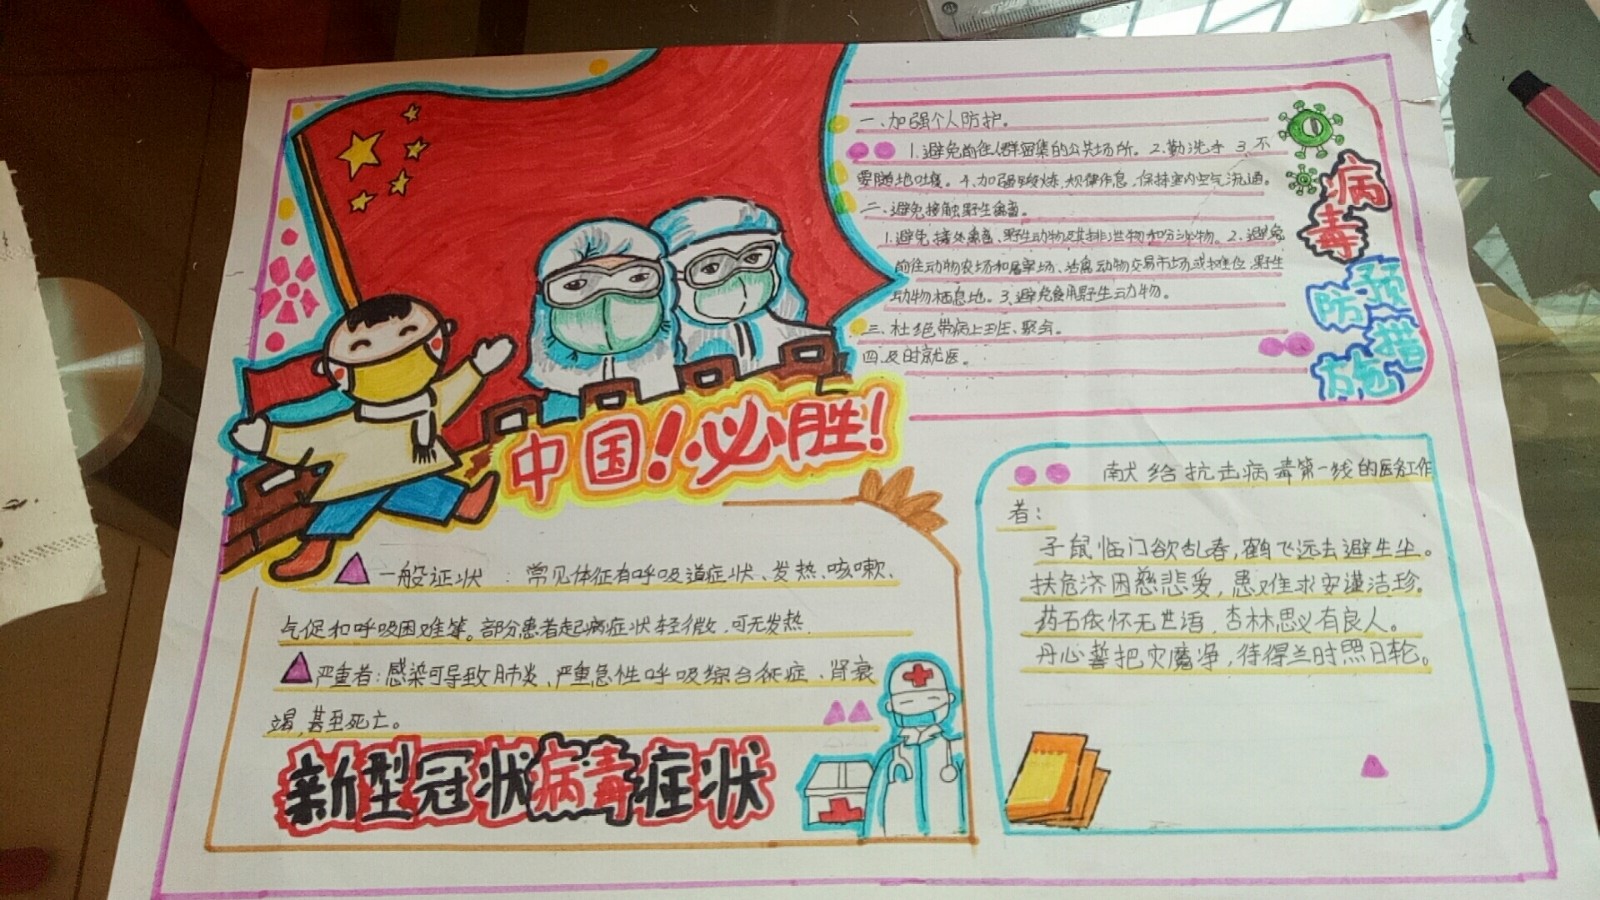 一、加强个人防护。
1.避免前往人群密集的公共场所。2.勤洗手 3.不
要随地吐痰。4.加强锻炼,规律作息,保持室内空气流通。
二、避免接触野生禽畜。
1.避免接触禽畜、野生动物及其排泄物和分泌物。2.避免
前往动物农场和屠宰场、活禽动物交易市场或摊位,野生
动物栖息地。3.避免食用野生动物。
三、杜绝带病上班、聚会。
四、及时就医。
病毒
预防措施
中国!必胜!
一般证状 : 常见体征有呼吸道症状、发热、咳嗽、
气促和呼吸困难等。部分患者起病症状轻微,可无发热.
严重者:感染可导致肺炎、严重急性呼吸综合征症、肾衰
竭,甚至死亡。
新型冠状病毒症状
献给抗击病毒第一线的医务工作
者:
子鼠临门欲乱春,鹤飞远去避生尘。
扶危济困慈悲爱,患难求安谨洁珍。
药石依怀无世语,杏林思义有良人。
丹心誓把灾魔净,待得兰时照日轮。